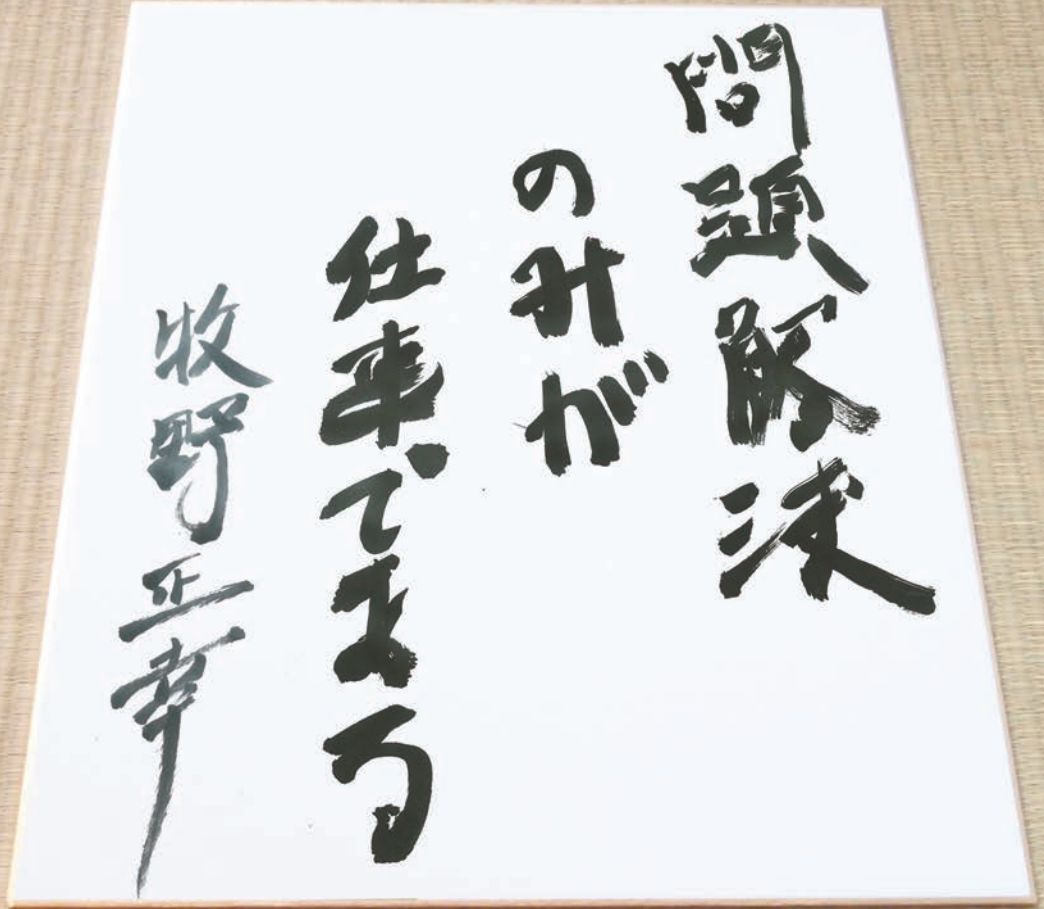 問題解決
のみが
仕事である
牧野正幸